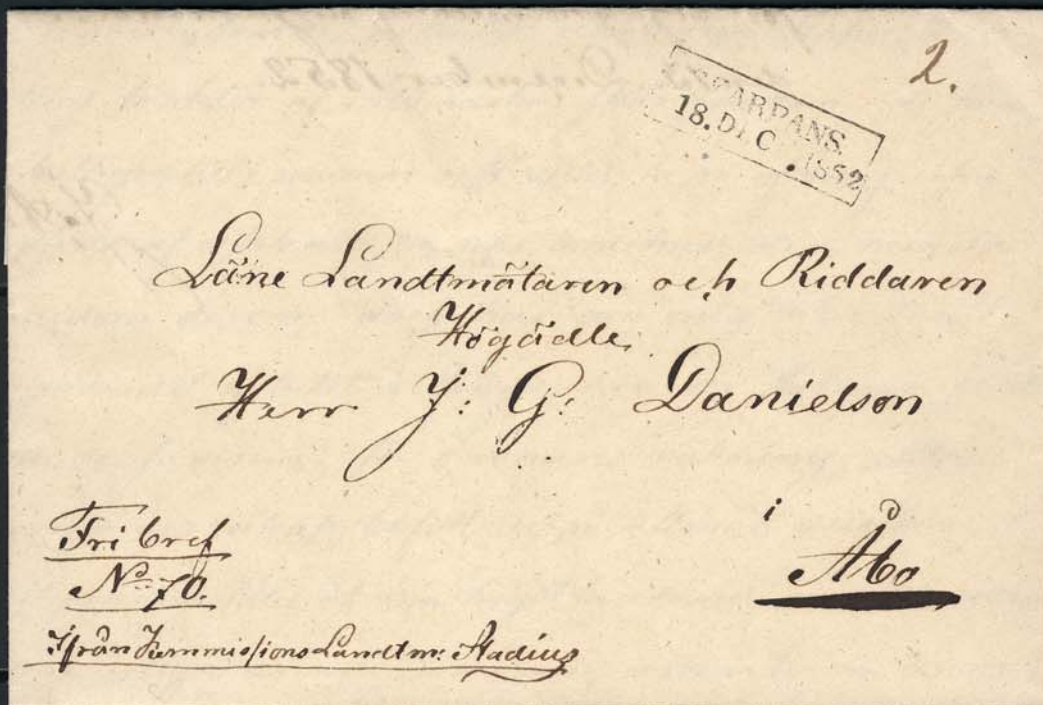 2.
SCARPANS.
18. DEC. 1852
Läne Landtmätaren och Riddaren
Högädle
Herr J: G: Danielson
i
Åbo
Fri bref
No 70.
Ifrån Kommissions Landtm: Stadius
December 1852.